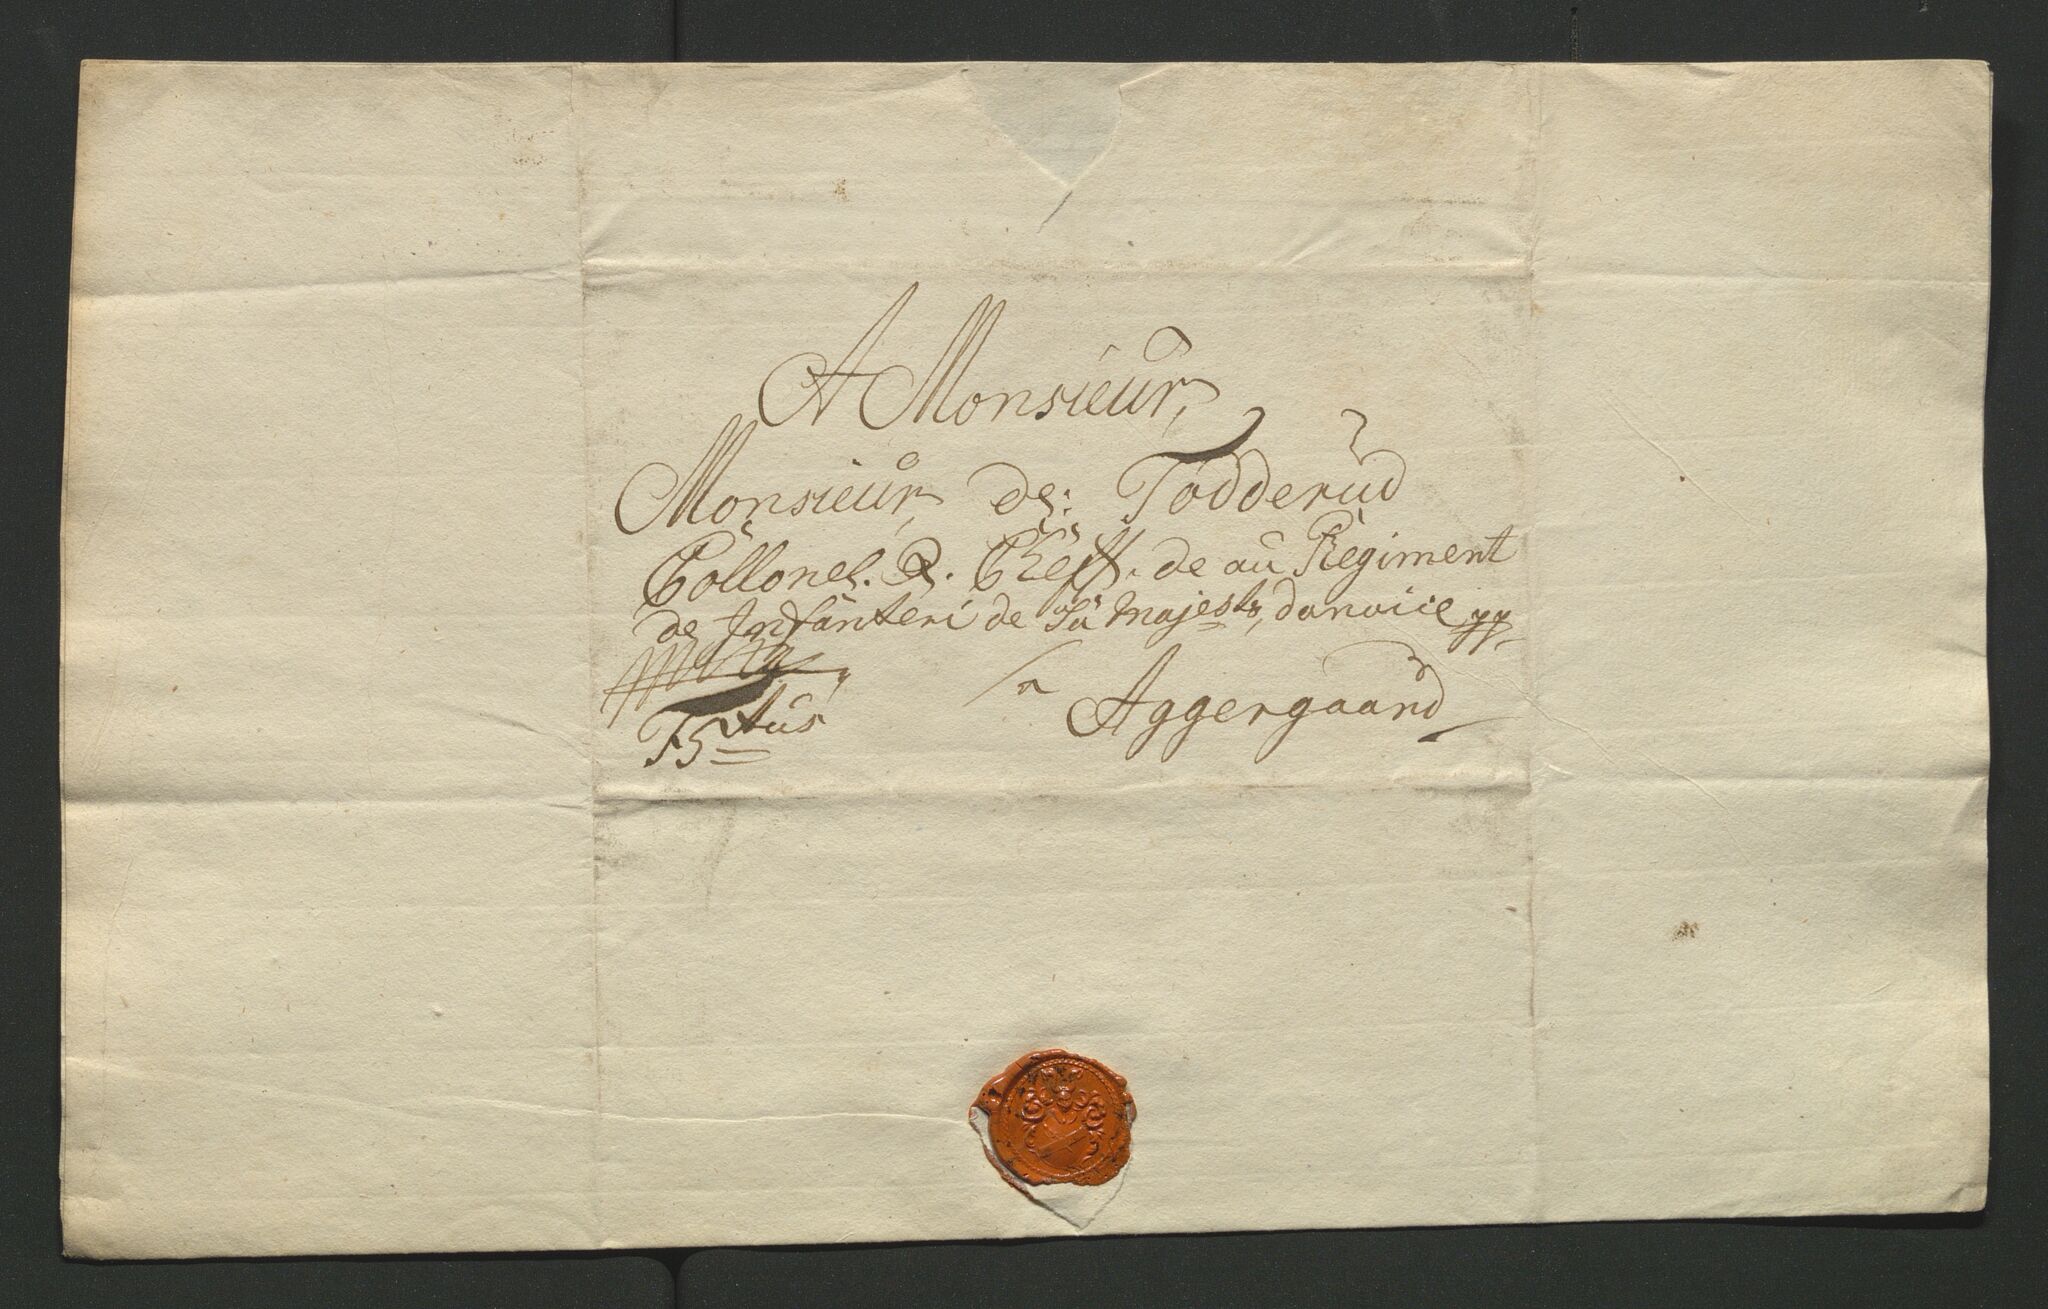 A Monsieur,
Monsieur, de: Todderud
Collonel. & Cheff. de au Regiment
de Infanteri de Sa Majesté, danoice pp
a Aggergaard